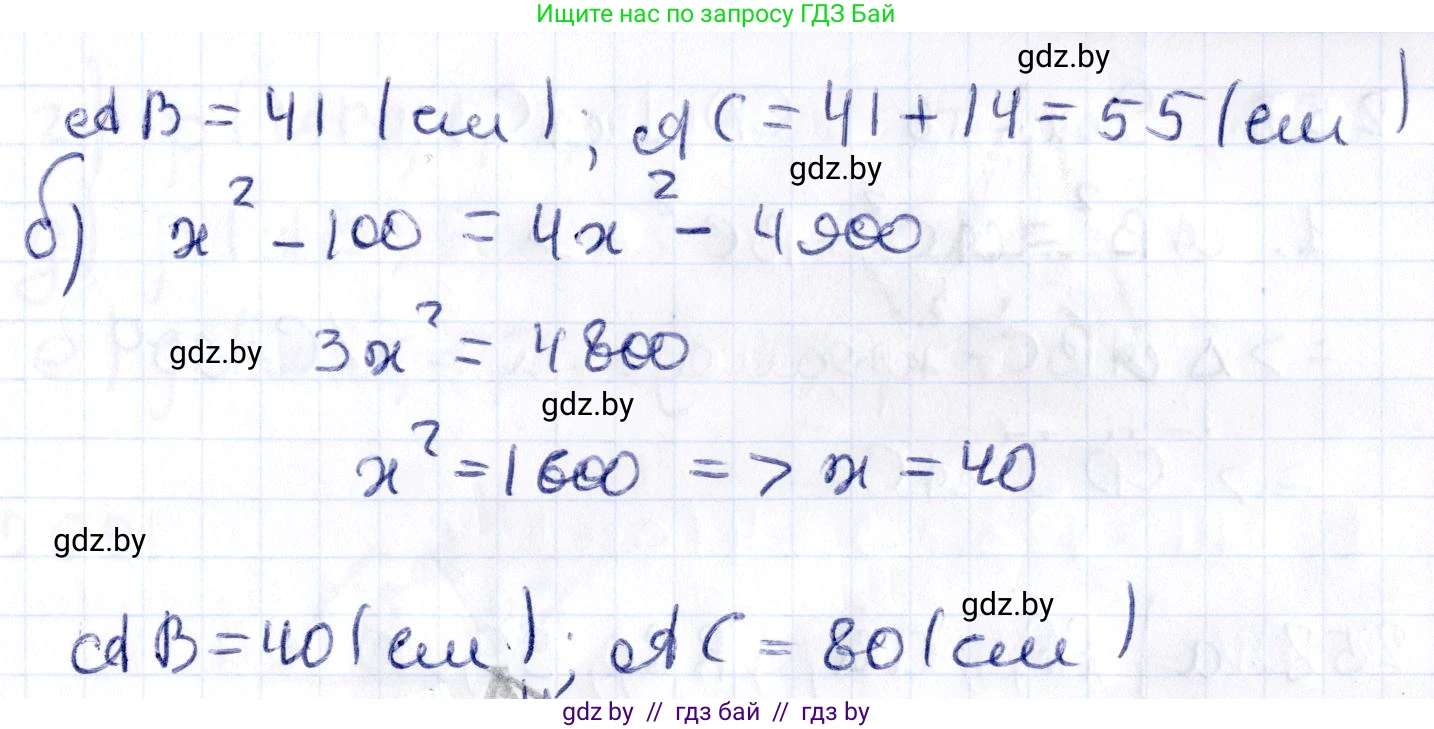 Ищите нас по запросу ГДЗ Бай
gdz.by
AB = 41 (см); AC = 41 + 14 = 55 (см)
gdz.by
б) x² - 100 = 4x² - 4900
gdz.by 3x² = 4800
gdz.by
x² = 1600 => x = 40
gdz.by
gdz.by
AB = 40 (см); AC = 80 (см)
gdz.by // гдз бай // гдз by